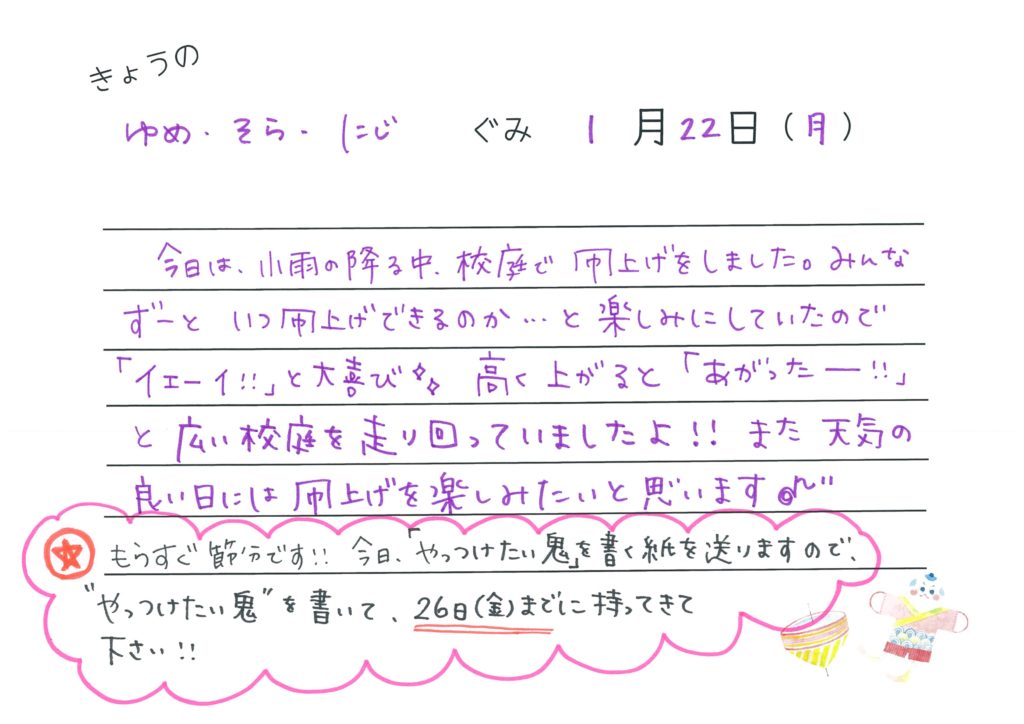 きょうの
ゆめ・そら・にじ ぐみ 1月22日(月)
今日は、小雨の降る中、校庭で凧上げをしました。みんな
ずーと いつ凧上げできるのか…と楽しみにしていたので
「イエーイ!!」と大喜び✧✧ 高く上がると「あがったー!!」
と広い校庭を走り回っていましたよ!! また天気の
良い日には凧上げを楽しみたいと思います。
もうすぐ節分です!! 今日、「やっつけたい鬼」を書く紙を送りますので、
"やっつけたい鬼"を書いて、26日(金)までに持ってきて
下さい!!